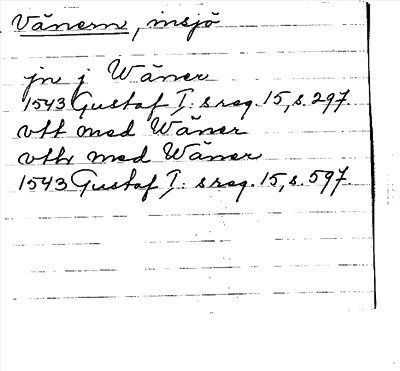 Vänern, insjö
jn j Wäner
1543 Gustaf I: s reg. 15, s. 297
vtt med Wäner
vth med Wäner
1543 Gustaf I: s reg. 15, s. 597